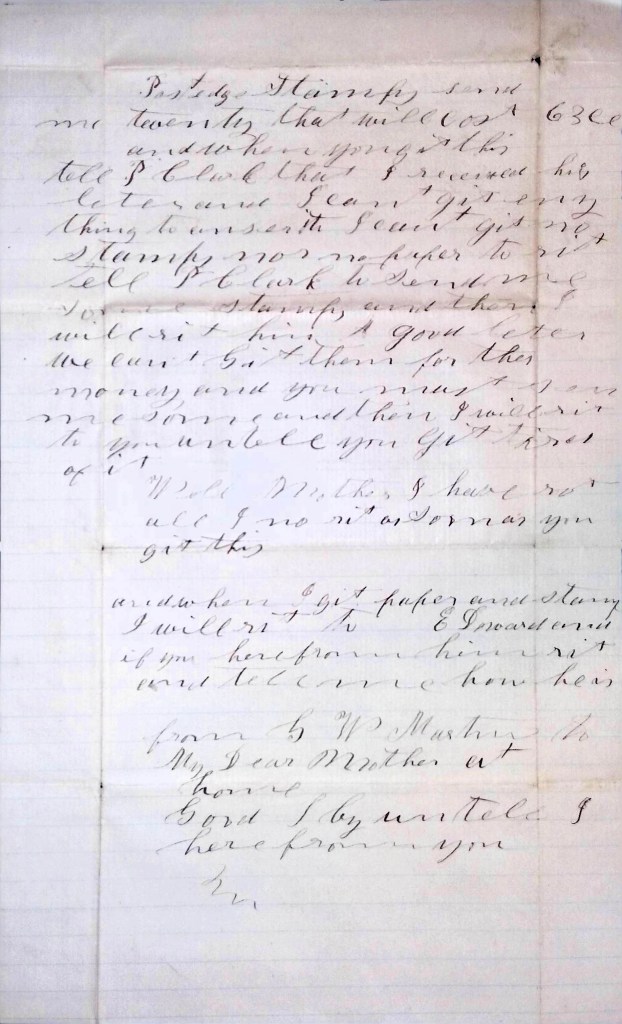 Postedge Stamps send
me twenty that will cost 63 ce
and when you git this
tell P Clark that I received his
leter and I can't git eny
thing to anser it I can't git no
stamps nor no paper to rit
tell P Clark to send me
some stamps and then I
will rit him A good leter
we can't Git them for this
money and you must sen
me some and then I will rit
to you untell you Git tired
of it
Well Mother I have rot
all I no rit as soon as you
git this
and when I git paper and stamp
I will rit to Edward and
if you here from him rit
and tell me how he is
from G W Martin to
My Dear Mother at
home
Good by untell I
here from you